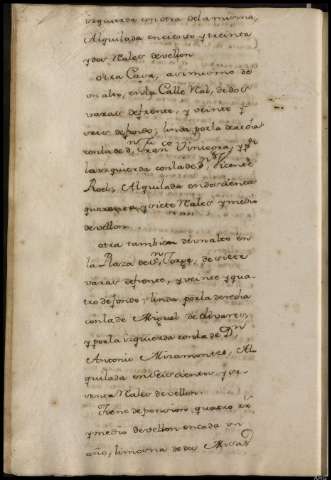 izquierda con otra de la misma,
Alquilada en ciento y treinta
y dos Reales de vellon.
otra Casa, asimismo de
un alto, en la Calle Real, de dos
varas de frente, y veinte y
seis de fondo, linda por la derecha
con la de Dn. Franco. y pr.
la izquierda con la de Dn. Vicente
Alquilada en doscientos
quarenta y siete Reales y medio
de vellon.
otra tambien de un alto en
la Plaza de Sn. Jorge, de siete
varas de frente, y veinte y qua-
tro de fondo, linda por la derecha
con la de Miguel de Olivares,
y por la izquierda con la de Dn.
Antonio Miramontes, Al-
quilada en seiscientos y se-
senta Reales de vellon.
Tiene de pension, quatro rs.
y medio de vellon en cada un
año, limosna de dos Misas